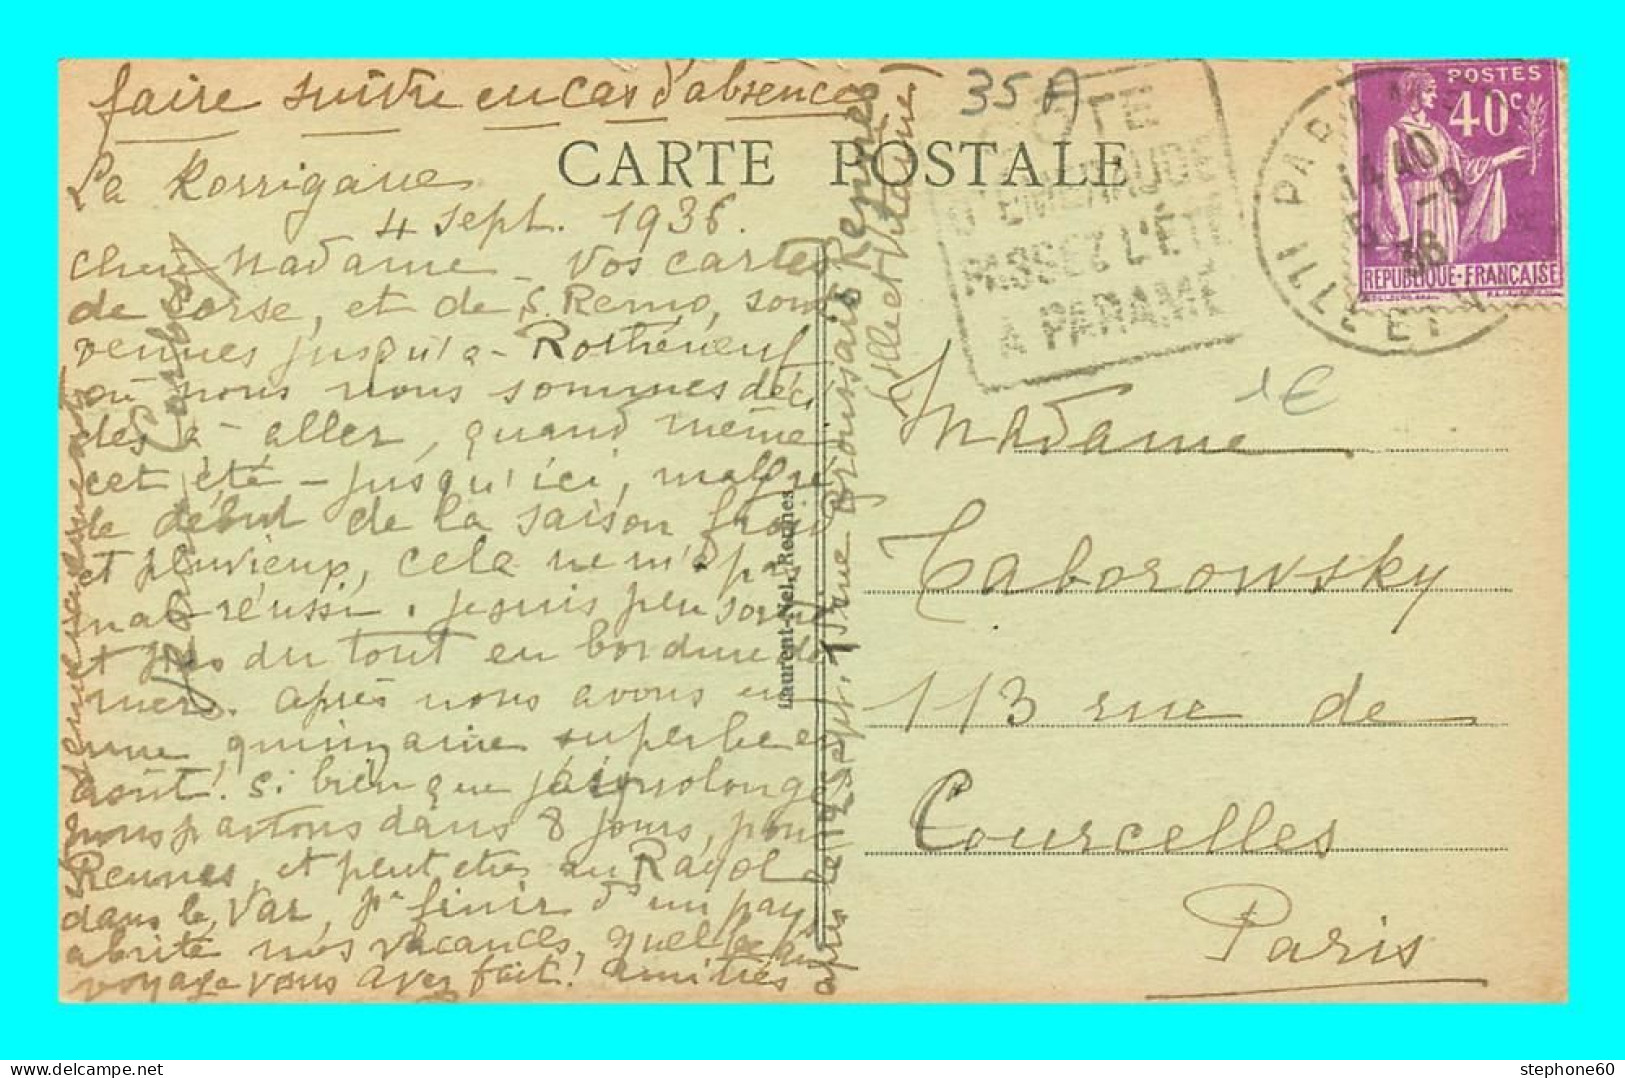 faire suivre en cas d'absence
35 A
CARTE POSTALE
La Korrigane
4 sept. 1936.
chère Madame - Vos cartes
de Corse, et de S. Remo, sont
venues jusqu'à - Rothéneuf
où nous nous sommes déci
dés à - aller, quand même
cet été - jusqu'ici, malgré
le début de la saison froid
et pluvieux, cela ne m'a pas
mal réussi. je suis peu sortie
et pas du tout en bordure de
mer. après nous avons eu
une quinzaine superbe en
août! Si bien que j'ai prolongé
nous partons dans 8 jours, pour
Rennes, et peut etre au Rayol
dans le Var, pr finir d'un pays
abrité nos vacances, quel beau
voyage vous avez fait! amitiés
après le 12 sept. 13 rue Broussais Rennes
Ille et Vilaine
Laurent-Nel, Rennes
COTE
D'EMERAUDE
PASSEZ L'ÉTÉ
A PARAMÉ
PARAMÉ
14 40
5 -9
36
ILLE ET V
POSTES
40c
REPUBLIQUE-FRANÇAISE
1€
Madame
Taborowsky
113 rue de
Courcelles
Paris
stephone60